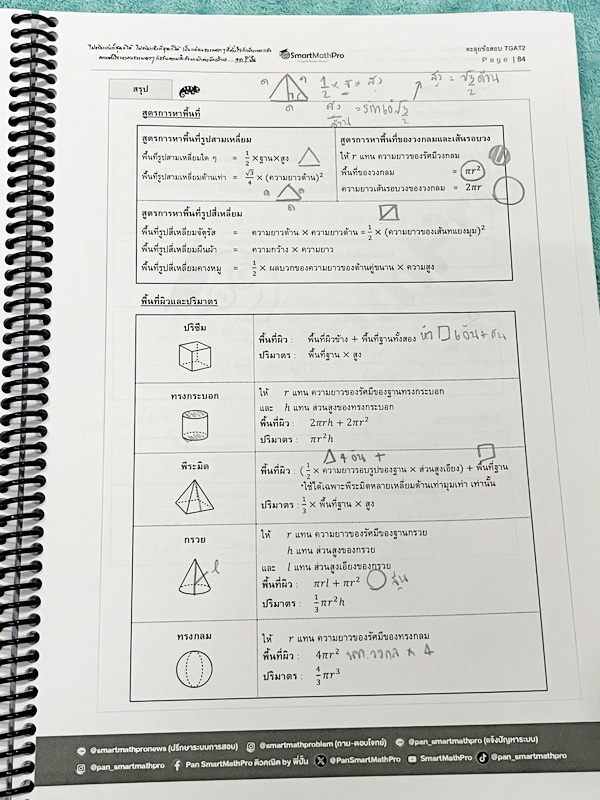 SmartMathPro
ตะลุยข้อสอบ TGAT2
Page | 84
สรุป
1/2 × ฐ × สูง
สูง = √3/2 ด้าน
สูง/ด้าน = sin60 √3/2
สูตรการหาพื้นที่
สูตรการหาพื้นที่รูปสามเหลี่ยม
พื้นที่รูปสามเหลี่ยมใด ๆ = 1/2 ×ฐาน×สูง
พื้นที่รูปสามเหลี่ยมด้านเท่า = √3/4 × (ความยาวด้าน)²
สูตรการหาพื้นที่ของวงกลมและเส้นรอบวง
ให้ r แทน ความยาวของรัศมีวงกลม
พื้นที่ของวงกลม = πr²
ความยาวเส้นรอบวงของวงกลม = 2πr
สูตรการหาพื้นที่รูปสี่เหลี่ยม
พื้นที่รูปสี่เหลี่ยมจัตุรัส = ความยาวด้าน × ความยาวด้าน = 1/2 × (ความยาวของเส้นทแยงมุม)²
พื้นที่รูปสี่เหลี่ยมผืนผ้า = ความกว้าง × ความยาว
พื้นที่รูปสี่เหลี่ยมคางหมู = 1/2 × ผลบวกของความยาวของด้านคู่ขนาน × ความสูง
พื้นที่ผิวและปริมาตร
ปริซึม
พื้นที่ผิว : พื้นที่ผิวข้าง + พื้นที่ฐานทั้งสอง
ปริมาตร : พื้นที่ฐาน × สูง
ทรงกระบอก
ให้ r แทน ความยาวของรัศมีของฐานทรงกระบอก
และ h แทน ส่วนสูงของทรงกระบอก
พื้นที่ผิว : 2πrh + 2πr²
ปริมาตร : πr²h
พีระมิด
พื้นที่ผิว : (1/2 × ความยาวรอบรูปของฐาน × ส่วนสูงเอียง) + พื้นที่ฐาน
*ใช้ได้เฉพาะพีระมิดหลายเหลี่ยมด้านเท่ามุมเท่า เท่านั้น
ปริมาตร : 1/3 × พื้นที่ฐาน × สูง
กรวย
l
ให้ r แทน ความยาวของรัศมีของฐานกรวย
h แทน ส่วนสูงของกรวย
และ l แทน ส่วนสูงเอียงของกรวย
พื้นที่ผิว : πrl + πr²
ปริมาตร : 1/3 πr²h
ทรงกลม
ให้ r แทน ความยาวของรัศมีของทรงกลม
พื้นที่ผิว : 4πr²
ปริมาตร : 4/3 πr³
@smartmathpronews (ปรึกษาระบบการสอบ) @smartmathproblem (ถาม-ตอบโจทย์) @pan_smartmathpro (แจ้งปัญหาระบบ)
@pan_smartmathpro Pan SmartMathPro ติวคณิต by พี่ปั้น @PanSmartMathPro SmartMathPro @pan_smartmathpro